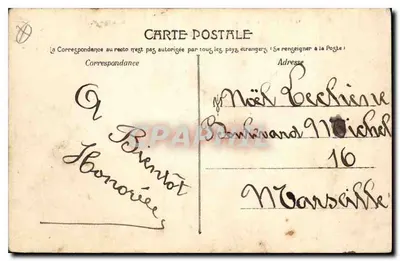 CARTE POSTALE
La Correspondance au recto n'est pas autorisée par tous les pays étrangers (Se renseigner à la Poste)
Correspondance
Adresse
A
Bientôt
Honorée
Noël
Boulevard Michel
16
Marseille
DELCAMPE